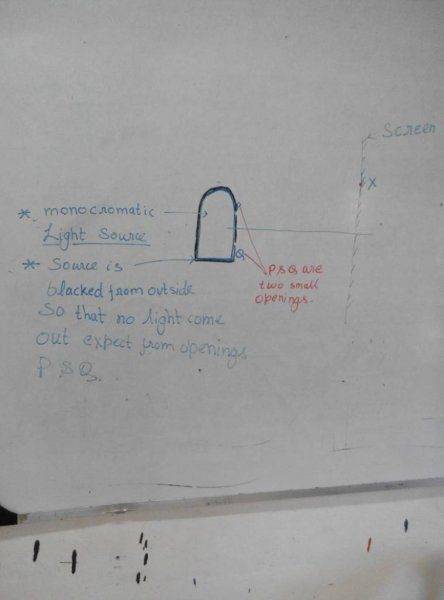 Screen
X
* monocromatic
Light Source
* Source is
blacked from outside
So that no light come
out expect from openings
P & Q.
Q
P & Q are
two small
openings.